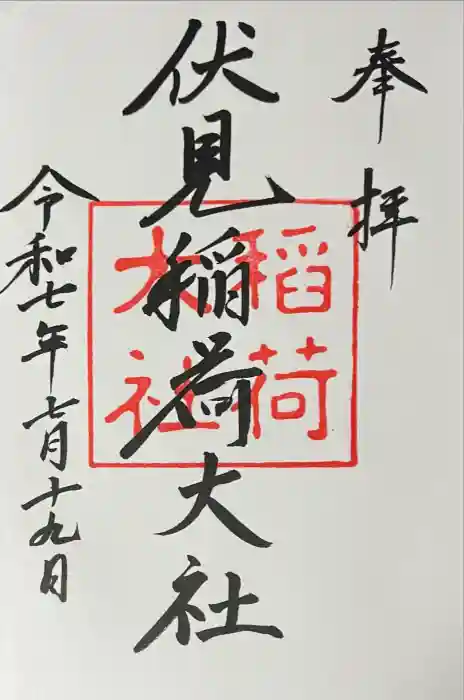 奉拝
伏見稲荷大社
稲荷
大社
令和七年七月十九日